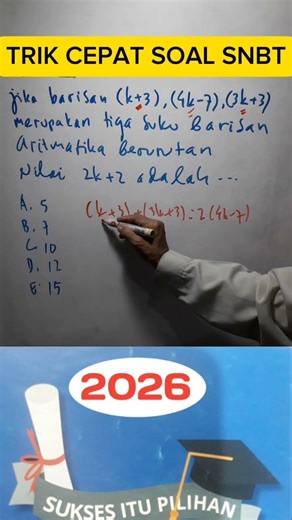 TRIK CEPAT SOAL SNBT
jika barisan (k+3), (4k-7), (3k+3)
merupakan tiga suku Barisan
Aritmatika berurutan
Nilai 2k+2 adalah ...
A. 5
B. 7
C. 10
D. 12
E. 15
(k+3)+(3k+3)=2(4k-7)
2026
SUKSES ITU PILIHAN